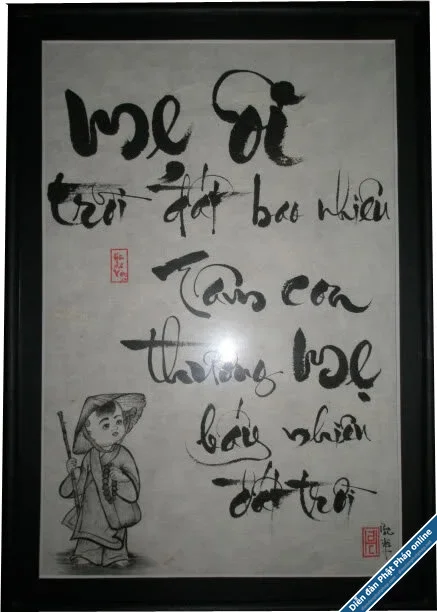 Mẹ ơi
trời đất bao nhiêu
Tâm con
thương Mẹ
bấy nhiêu
đất trời
Diễn đàn Phật Pháp online